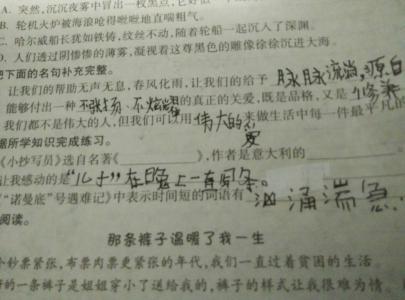 A. 突然,沉沉夜雾中冒出一枚黑点,它好似
B. 轮机火炉被海浪呛得咝咝地直喘粗气。
C. 哈尔威船长犹如铁铸,纹丝不动,随着轮船一起沉入了深渊。
D. 人们透过阴惨惨的薄雾,凝视着这尊黑色的雕像徐徐沉进大海。
把下面的名句补充完整。
让我们的帮助无声无息,春风化雨,让我们的给予 脉脉流淌,源自
能够付出一种 不张扬、不炫耀 的真正的关爱,既是品格,又是 修养
我们都不是伟大的人,但我们可以用 伟大的爱 来做生活中每一件最平凡的
据所学知识完成练习。
《小抄写员》选自名著《 》,作者是意大利的
让我感动的是 “儿子”在晚上一直写条。
《“诺曼底”号遇难记》中表示时间短的词语有 汹涌湍急
阅读。
那条裤子温暖了我一生
个钞票紧张,布票肉票更紧张的年代,我们一直过着贫困的生活
的一条裤子是姐姐穿小了送给我的,裤子的样式让我很难为情。